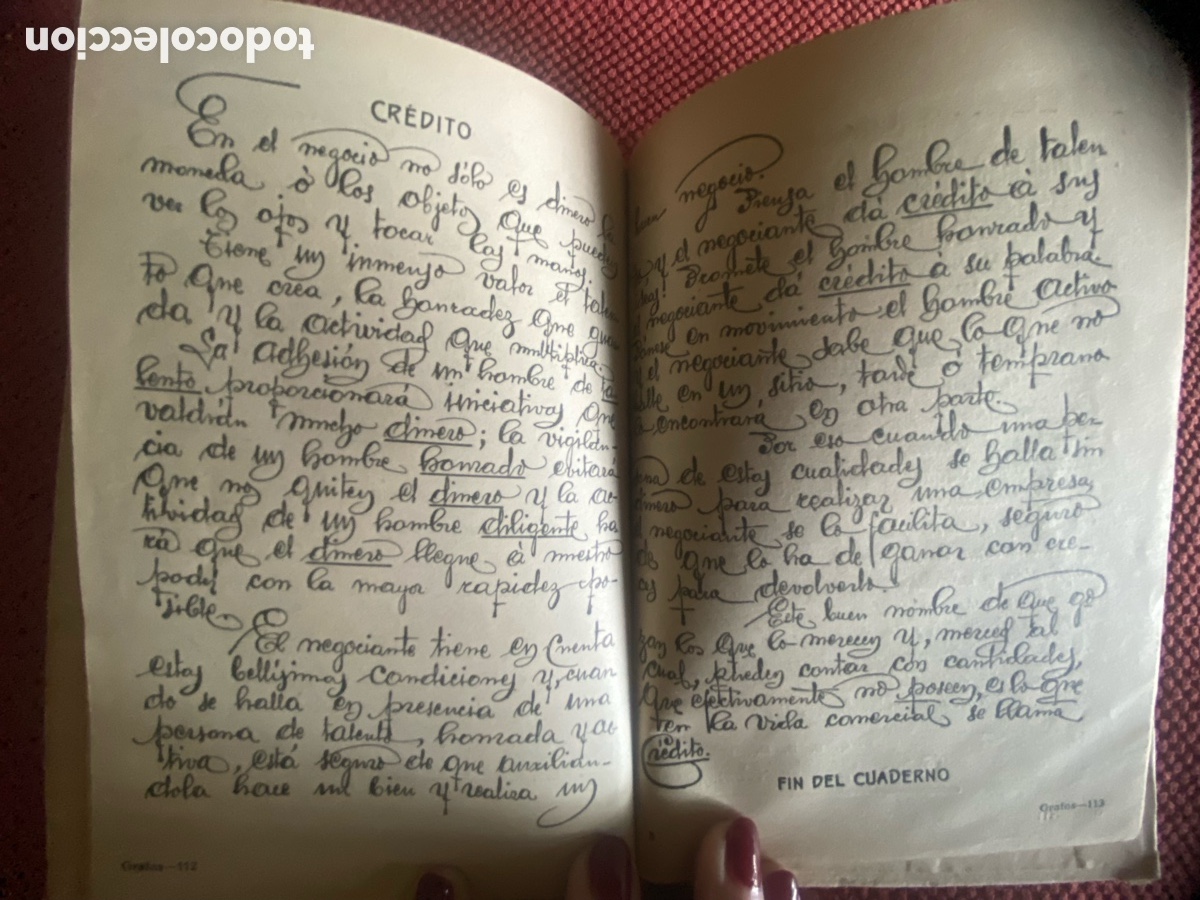 todocoleccion
CRÉDITO
En el negocio no sólo es dinero la
moneda ò los objetos que pueden
ver los ojos y tocar las manos.
Tiene un inmenso valor el talen
to que crea, la honradez que guar
da y la actividad que multiplica.
La adhesión de un hombre de ta
lento proporcionará iniciativas que
valdrán mucho dinero; la vigilan-
cia de un hombre honrado evitará
que nos quiten el dinero y la ac
tividad de un hombre diligente ha
rá que el dinero llegue à nuestro
poder con la mayor rapidez po-
sible.
El negociante tiene en cuenta
estas bellísimas condiciones y, cuan
do se halla en presencia de una
persona de talento, honrada y ac
tiva, está seguro de que auxilián-
dola hace un bien y realiza un
Grafos—112
buen negocio.
Piensa el hombre de talen
y el negociante dá crédito à sus
ideas. Promete el hombre honrado y
el negociante dá crédito à su palabra.
Pónese en movimiento el hombre activo
y el negociante sabe que lo que no
halle en un sitio, tarde ó temprano
lo encontrará en otra parte.
Por eso cuando una per-
sona de estas cualidades se halla sin
dinero para realizar una empresa,
el negociante se lo facilita, seguro
de que lo ha de ganar con cre-
ces para devolverlo.
Este buen nombre de que go
zan los que lo merecen y, merced al
cual, pueden contar con cantidades,
que efectivamente no poseen, es lo que
en la vida comercial se llama
crédito.
FIN DEL CUADERNO
Grafos—113